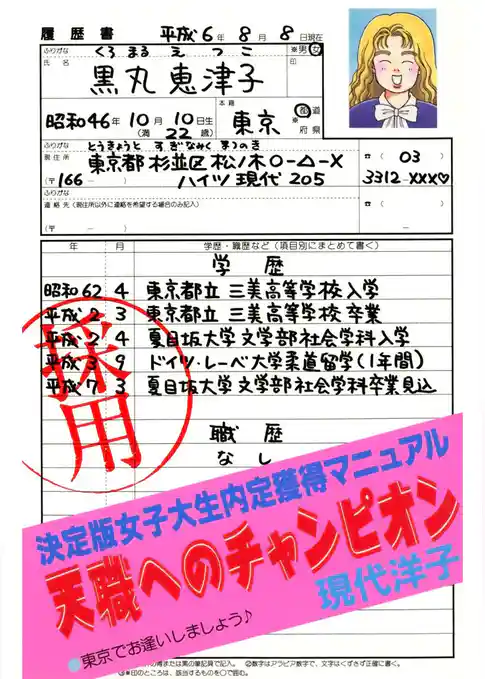 履歴書 平成6年8月8日現在
ふりがな くろ まる え つ こ ※男・女
氏名 黒丸恵津子 印
昭和46年10月10日生 (満22歳) 本籍 東京 ※都道府県
ふりがな とうきょうと すぎなみく まつのき
現住所 東京都杉並区松ノ木○-△-×
(〒166 - ) ハイツ現代205
☎(03) 3312-XXX♡
ふりがな
連絡先(現住所以外に連絡を希望する場合のみ記入) ☎( )
(〒 - )
年 月 学歴・職歴など(項目別にまとめて書く)
学歴
昭和62 4 東京都立三美高等学校入学
平成2 3 東京都立三美高等学校卒業
平成2 4 夏目坂大学文学部社会学科入学
平成3 9 ドイツ・レーベ大学柔道留学(1年間)
平成7 3 夏目坂大学文学部社会学科卒業見込
採用
職歴
なし
決定版女子大生内定獲得マニュアル
天職へのチャンピオン
現代洋子
●東京でお逢いしましょう♪
または黒の筆記具で記入。 ②数字はアラビア数字で、文字はくずさず正確に書く。
③※印のところは、該当するものを○で囲む。